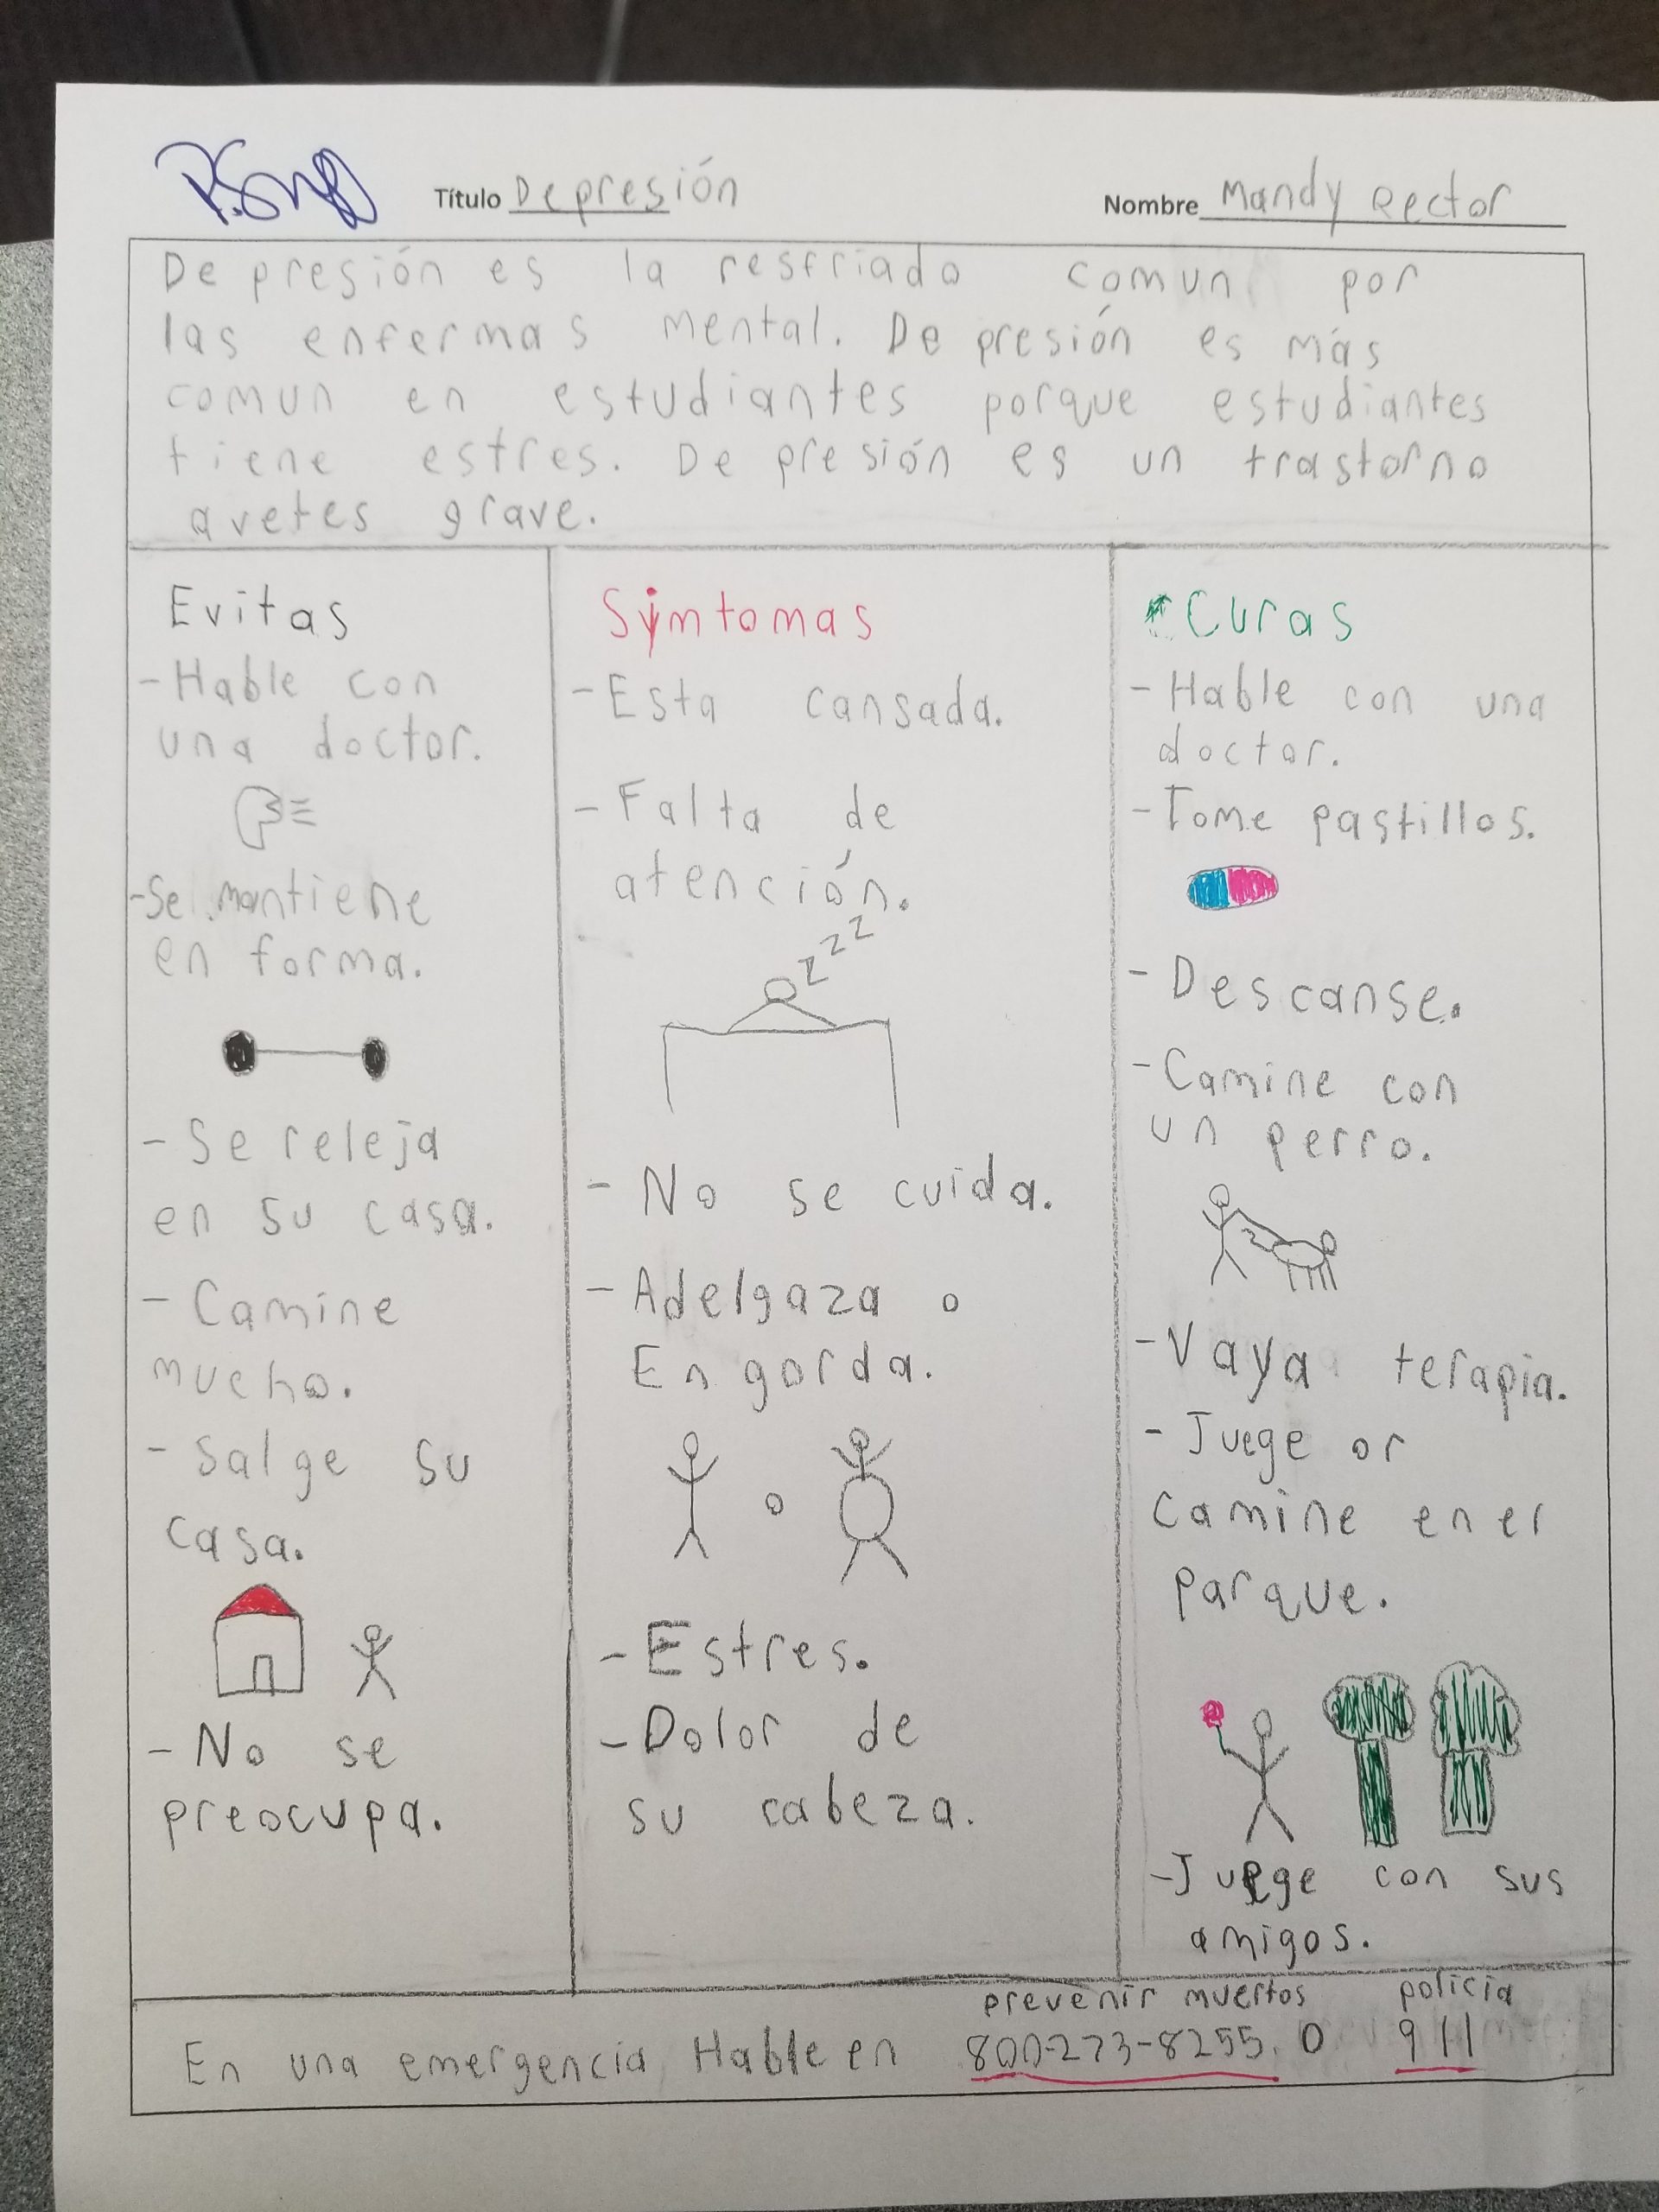 Título Depresión Nombre Mandy Rector
Depresión es la resfriado comun por
las enfermas mental. Depresión es más
comun en estudiantes porque estudiantes
tiene estres. Depresión es un trastorno
avetes grave.
Evitas
-Hable con
una doctor.
-Se mantiene
en forma.
-Se releja
en su casa.
-Camine
mucho.
-Salge su
casa.
-No se
preocupa.
Símtomas
-Esta cansada.
-Falta de
atención.
zzzz
-No se cuida.
-Adelgaza o
Engorda.
o
-Estres.
-Dolor de
su cabeza.
Curas
-Hable con una
doctor.
-Tome pastillos.
-Descanse.
-Camine con
un perro.
-Vaya terapia.
-Juege or
camine en el
parque.
-Juege con sus
amigos.
prevenir muertos policía
En una emergencia Hable en 800-273-8255. O 911